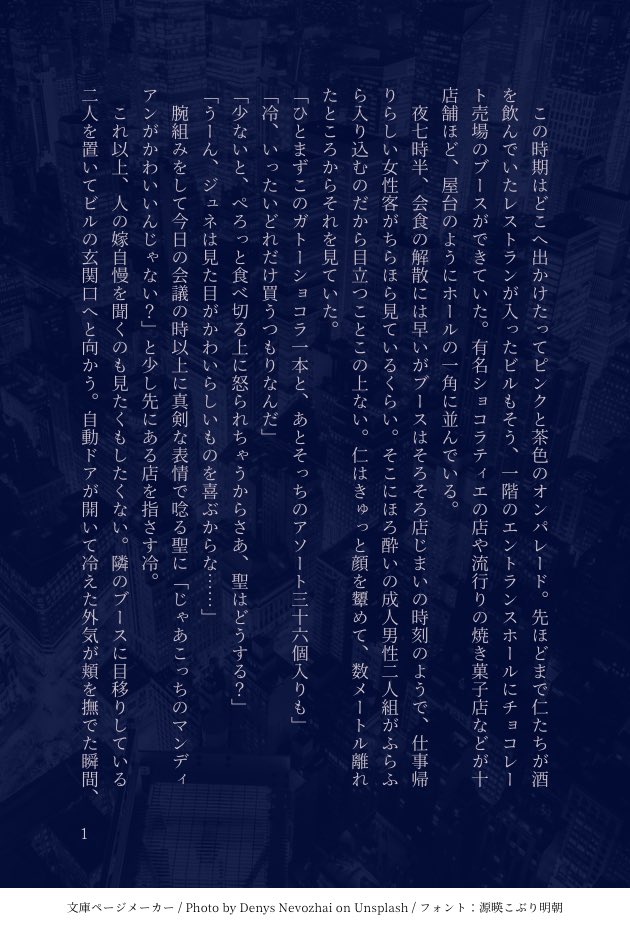 この時期はどこへ出かけたってピンクと茶色のオンパレード。先ほどまで仁たちが酒
を飲んでいたレストランが入ったビルもそう、一階のエントランスホールにチョコレー
ト売場のブースができていた。有名ショコラティエの店や流行りの焼き菓子店などが十
店舗ほど、屋台のようにホールの一角に並んでいる。
　夜七時半、会食の解散には早いがブースはそろそろ店じまいの時刻のようで、仕事帰
りらしい女性客がちらほら見ているくらい。そこにほろ酔いの成人男性二人組がふらふ
ら入り込むのだから目立つことこの上ない。仁はきゅっと顔を顰めて、数メートル離れ
たところからそれを見ていた。
「ひとまずこのガトーショコラ一本と、あとそっちのアソート三十六個入りも」
「冷、いったいどれだけ買うつもりなんだ」
「少ないと、ぺろっと食べ切る上に怒られちゃうからさあ、聖はどうする？」
「うーん、ジュネは見た目がかわいらしいものを喜ぶからな……」
　腕組みをして今日の会議の時以上に真剣な表情で唸る聖に「じゃあこっちのマンディ
アンがかわいいんじゃない？」と少し先にある店を指さす冷。
　これ以上、人の嫁自慢を聞くのも見たくもしたくない。隣のブースに目移りしている
二人を置いてビルの玄関口へと向かう。自動ドアが開いて冷えた外気が頬を撫でた瞬間、
1
文庫ページメーカー / Photo by Denys Nevozhai on Unsplash / フォント：源暎こぶり明朝